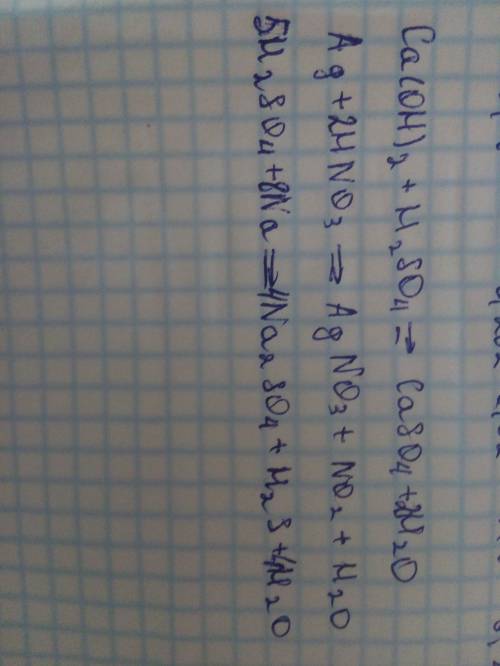 Ca(OH)2 + H2SO4 ⇒ CaSO4 + 2H2O
Ag + 2HNO3 ⇒ AgNO3 + NO2 + H2O
5H2SO4 + 8Na ⇒ 4Na2SO4 + H2S + 4H2O